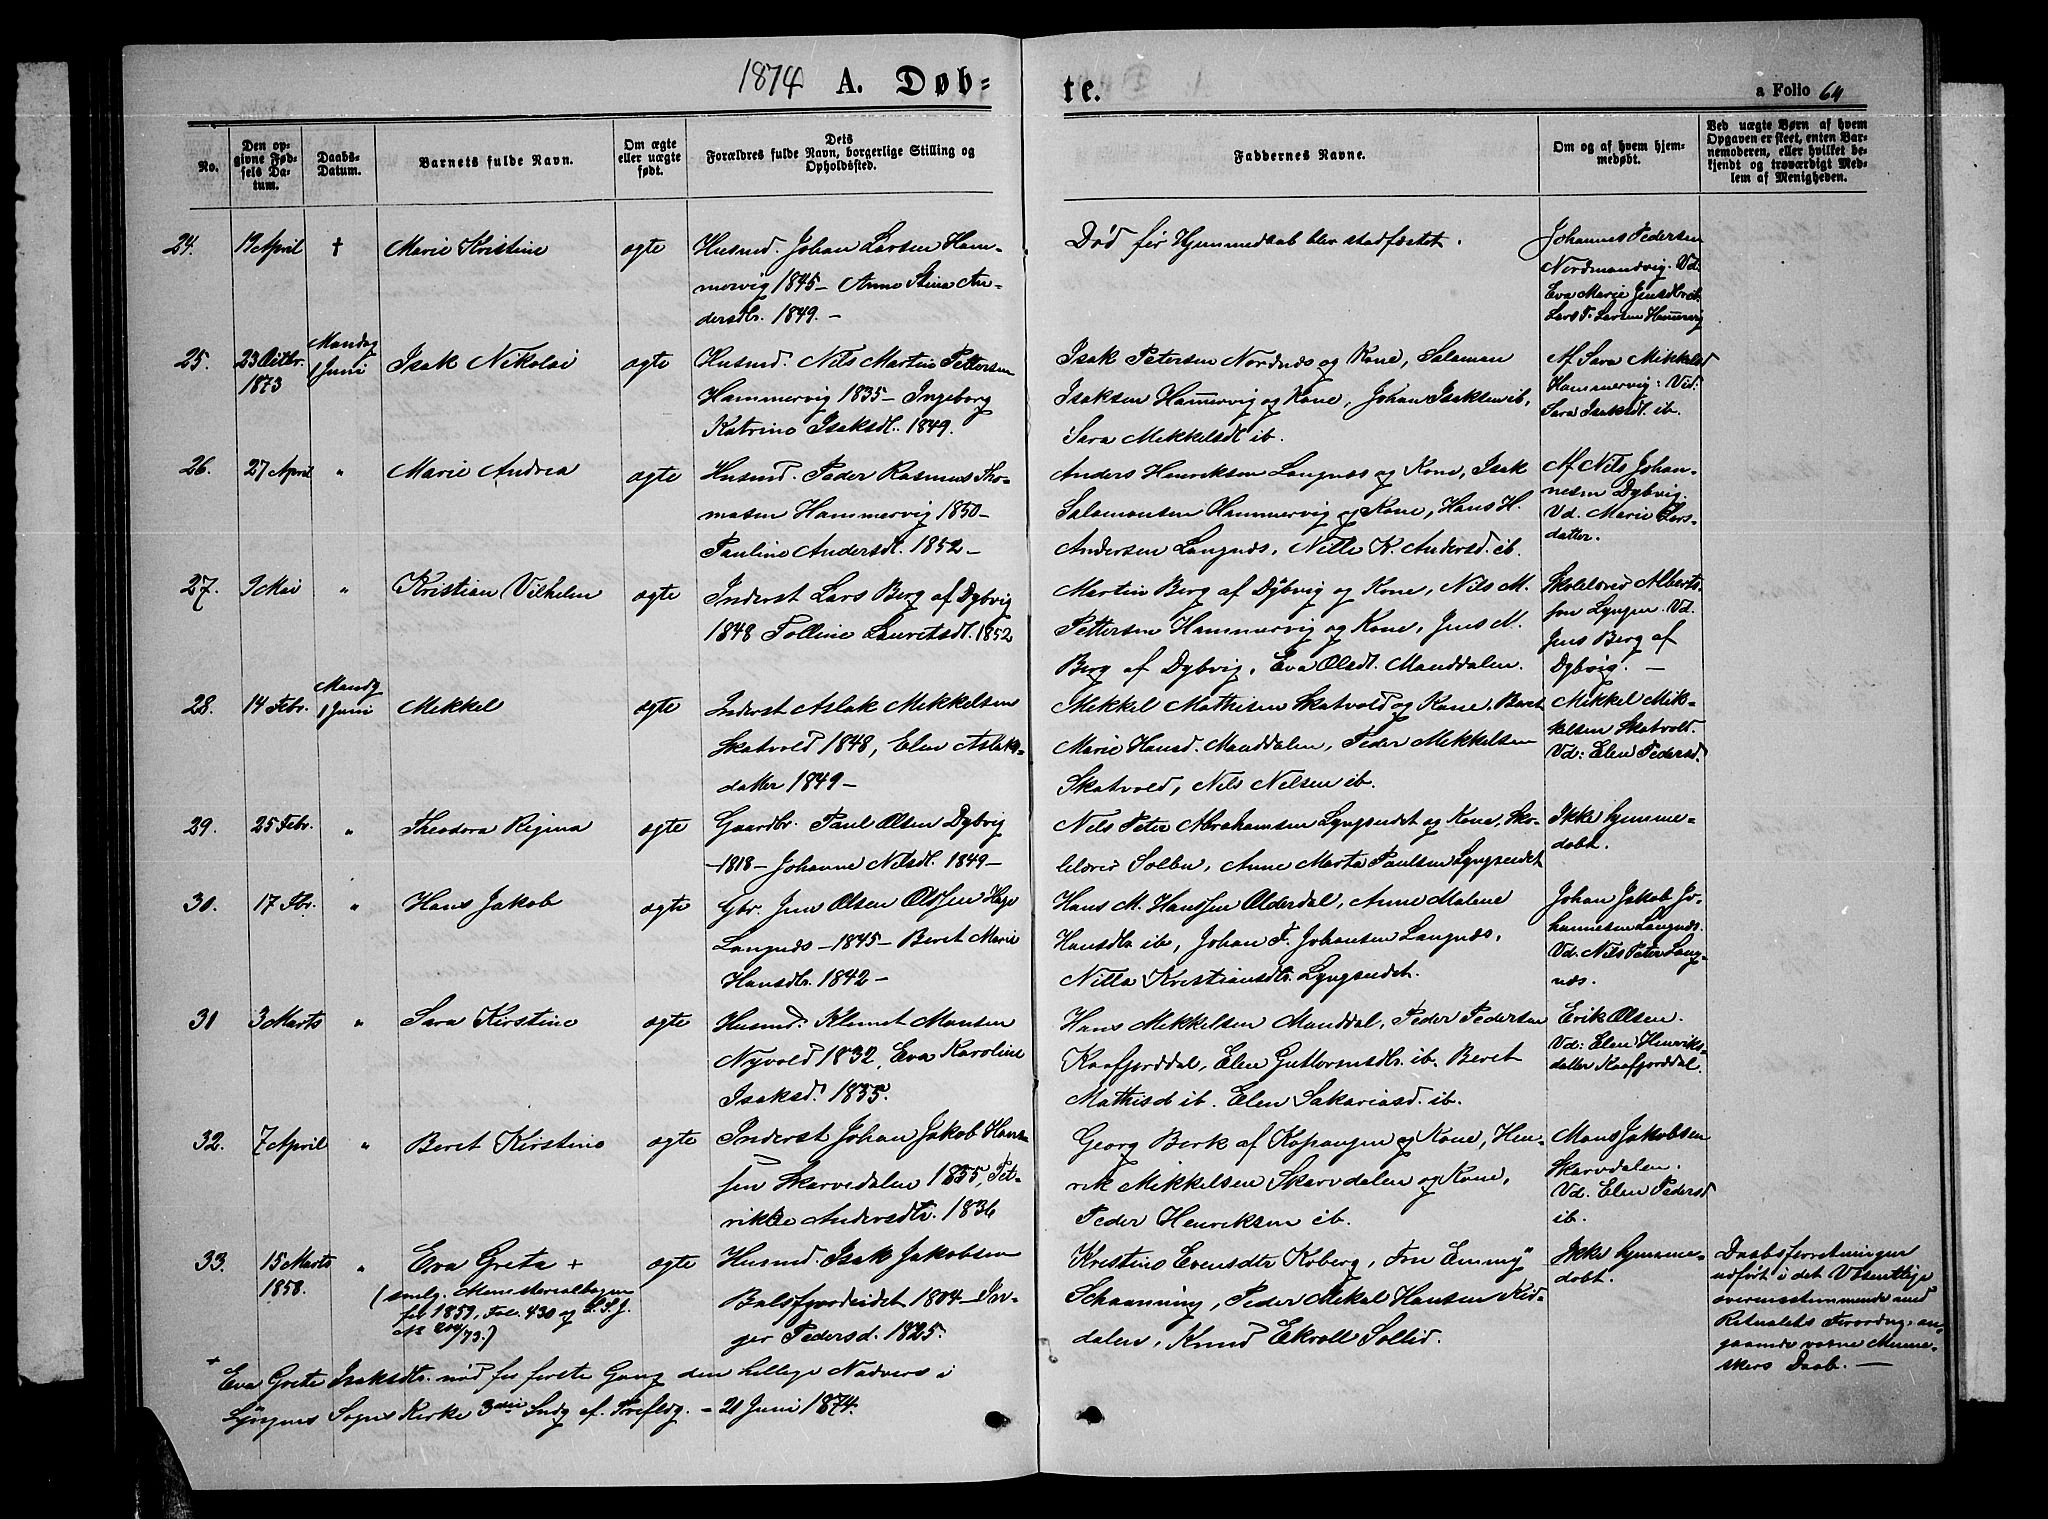 1874 A. Døb-
te.
a Folio 64
No.
Den op-
givne Fød-
sels Da-
tum.
Daabs-
Datum.
Barnets fulde Navn.
Om ægte
eller uægte
født.
Dets
Forældres fulde Navn, borgerlige Stilling og
Opholdssted.
Faddernes Navne.
Om og af hvem hjem-
medøbt.
Ved uægte Børn af hvem
Opgaven er skeet, enten Bar-
nemoderen, eller hvilket be-
kjendt og troværdigt Med-
lem af Menigheden.
24. 19 April † Marie Kristine ægte
Husmd. Johan Larsen Ham-
mervig 1845 – Anne Stina An-
dersdtr. 1849. –
Død før Hjemmedaab blev stadfæstet.
Johannes Pedersen
Nordmandvig. Vd:
Eva Marie Jensdtr ib.
Lars P. Larsen Hammervig
25. 23 Octbr. 1873
Mandag
1 Juni
Isak Nikolai ægte
Husmd. Nils Martin Pettersen
Hammervig 1835 – Ingeborg
Katrine Isaksdl. 1849.
Isak Petersen Nordnæs og Kone, Salamon
Isaksen Hammervig og Kone, Johan Isaksen ib,
Sara Mikkelsdt ib.
Af Sara Mikkelsd
Hammervig: Vid:
Sara Isaksdl. ib.
26. 27 April " Marie Andrea ægte
Husmd. Peder Rasmus Tho-
masen Hammervig 1850 –
Pauline Andersdl. 1852 –
Anders Henriksen Langnæs og Kone, Isak
Salamonsen Hammervig og Kone, Hans H.
Andersen Langnæs, Nille K. Andersd. ib.
Af Nils Johan-
nesen Dybvig.
Vd. Marie Lars-
datter.
27. 9 Mai " Kristian Vilhelm ægte
Inderst Lars Berg af Dybvig
1848 Tolline Lauritsdl. 1852
Martin Berg af Dybvig og Kone, Nils M.
Pettersen Hammervig og Kone, Jens M.
Berg af Dybvig, Eva Olsdt. Manddalen.
Skolelærer Alberts-
sen Lyngen. Vd.
Jens Berg af
Dybvig. –
28. 14 Febr.
Mandg
1 Juni
Mikkel ægte
Inderst Aslak Mikkelsen
Skatvold 1848, Elen Aslaks-
datter 1849 –
Mikkel Mathisen Skatvold og Kone, Beret
Marie Hansd. Manddalen, Peder Mikkelsen
Skatvold, Nils Nilsen ib.
Mikkel Mik-
kelsen Skatvold.
Vd: Elen Pedersd.
29. 25 Febr. " Theodora Regina ægte
Gaardbr. Paul Olsen Dybvig
– 1818 – Johanne Nilsdl. 1849 –
Nils Peter Abrahamsen Lyngseidet og Kone, Sko-
lelærer Solbu, Anne Marta Paulsen Lyngseidet
Ikke hjemme-
døbt.
30. 17 Fbr. " Hans Jakob ægte
Gbr. Jens Olsen
Langnæs – 1845 – Beret Marie
Hansdtr. 1842 –
Hans M. Hanssen Olderdal, Anne Malene
Hansdtr ib, Johan P. Johansen Langnæs,
Nilla Kristiansdtr. Lyngseidet.
Johan Jakob Jo-
hannesen Langnæs.
Vd. Nils Peter Lang-
næs.
31 3 Marts " Sara Kirstine ægte
Husmd. Klemet Monsen
Nyvold 1832, Eva Karoline
Isaksd. 1835.
Hans Mikkelsen Manddal, Peder Pedersen
Kaafjorddal, Elen Guttormsdtr. ib. Beret
Mathisd ib. Elen Sakariasd. ib.
Erik Olsen.
Vd: Elen Henriks-
datter Kaafjorddal.
32. 7 April " Beret Kirstine ægte
Inderst Johan Jakob Hans-
sen Skarvedalen 1835, Pet-
rikke Andersdtr. 1836
Georg Berk af Kopangen og Kone, Hen-
rik Mikkelsen Skarvdalen og Kone,
Peder Henriksen ib.
Mons Jakobsen
Skarvdalen.
Vd. Elen Pedersd
ib.
33. 15 Marts 1858. " Eva Greta + ægte
(smlg. Ministerialbogen
for 1859, Fol. 430 og
No 204/73.)
Husmd. Isak Jakobsen
Balsfjordeidet 1804 – In-
ger Pedersd. 1825.
Kristine Evensdtr Koberg, Fru Emmy
Schaanning, Peder Mikal Hansen Kid-
dalen, Knud Ekroll Sollid.
Ikke hjemme-
døbt.
Daabsforretningen
udført i det Væsentlige
overensstemmende med
Ritualets Forordng. an-
gaaende voxne Menne-
skers Daab. –
+ Eva Grete Isaksdtr. nød for første Gang den hellige Nadvere i
Lyngens Sogns Kirke 3die Sndg ef. Trefldg. – 21 Juni 1874.